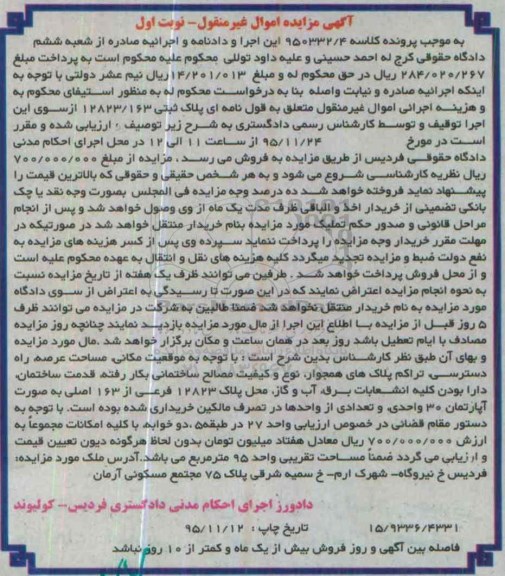 آگهی مزایده اموال غیرمنقول- نوبت اول
به موجب پرونده کلاسه ۹۵۰۳۳۲/۴ این اجرا و دادنامه و اجرائیه صادره از شعبه ششم
دادگاه حقوقی کرج له احمد حسینی و علیه داود توللی محکوم علیه محکوم است به پرداخت مبلغ
۲۸۴/۰۲۰/۲۶۷ ریال در حق محکوم له و مبلغ ۱۴/۲۰۱/۰۱۳ ریال نیم عشر دولتی با توجه به
اینکه اجرائیه صادره و نیابت واصله بنا به درخواست محکوم له به منظور استیفای محکوم به
و هزینه اجرائی اموال غیرمنقول متعلق به قول نامه ای پلاک ثبتی ۱۲۸۲۳/۱۶۳ ازسوی این
اجرا توقیف و توسط کارشناس رسمی دادگستری به شرح زیر توصیف ، ارزیابی شده و مقرر
است در مورخ ۹۵/۱۱/۲۴ از ساعت ۱۱ الی ۱۲ در محل اجرای احکام مدنی
دادگاه حقوقی فردیس از طریق مزایده به فروش می رسد ، مزایده از مبلغ ۷۰۰/۰۰۰/۰۰۰
ریال نظریه کارشناسی شروع می شود و به هر شخص حقیقی و حقوقی که بالاترین قیمت را
پیشنهاد نماید فروخته خواهد شد ده درصد وجه مزایده فی المجلس بصورت وجه نقد یا چک
بانکی تضمینی از خریدار اخذ و الباقی ظرف مدت یک ماه از وی وصول خواهد شد و پس از انجام
مراحل قانونی و صدور حکم تملیک مورد مزایده بنام خریدار منتقل خواهد شد در صورتیکه در
مهلت مقرر خریدار وجه مزایده را پرداخت ننماید سپرده وی پس از کسر هزینه های مزایده به
نفع دولت ضبط و مزایده تجدید میگردد کلیه هزینه های نقل و انتقال به عهده محکوم علیه است
و از محل فروش پرداخت خواهد شد . طرفین می توانند ظرف یک هفته از تاریخ مزایده نسبت
به نحوه انجام مزایده اعتراض نمایند که در این صورت تا رسیدگی به اعتراض از سوی دادگاه
مورد مزایده به نام خریدار منتقل نخواهد شد ضمنا طالبین به شرکت در مزایده می توانند ظرف
۵ روز قبل از مزایده با اطلاع این اجرا از مال مورد مزایده بازدید نمایند چنانچه روز مزایده
مصادف با ایام تعطیل باشد روز بعد در همان ساعت و مکان برگزار خواهد شد .مال مورد مزایده
و بهای آن طبق نظر کارشناس بدین شرح است : با توجه به موقعیت مکانی، مساحت عرصه، راه
دسترسی، تراکم پلاک های همجوار، نوع و کیفیت مصالح ساختمانی بکار رفته، قدمت ساختمان،
دارا بودن کلیه انشعابات برق، آب و گاز، محل پلاک ۱۲۸۲۳ فرعی از ۱۶۳ اصلی به صورت
آپارتمان ۳۰ واحدی، و تعدادی از واحدها در تصرف مالکین خریداری شده بوده است. با توجه به
دستور مقام قضائی در خصوص ارزیابی واحد ۲۷ در طبقه۵ ،دو خوابه، با کلیه امکانات مجموعاً به
ارزش ۷۰۰/۰۰۰/۰۰۰ ریال معادل هفتاد میلیون تومان بدون لحاظ هرگونه دیون تعیین قیمت
و ارزیابی می گردد ضمناً مساحت تقریبی واحد ۹۵ مترمربع می باشد.آدرس ملک مورد مزایده:
فردیس خ نیروگاه- شهرک ارم- خ سمیه شرقی پلاک ۷۵ مجتمع مسکونی آرمان
دادورز اجرای احکام مدنی دادگستری فردیس- کولیوند
۱۵/۹۳۳۶/۴۳۳۱ تاریخ چاپ : ۹۵/۱۱/۱۲
فاصله بین آگهی و روز فروش بیش از یک ماه و کمتر از ۱۰ روز نباشد